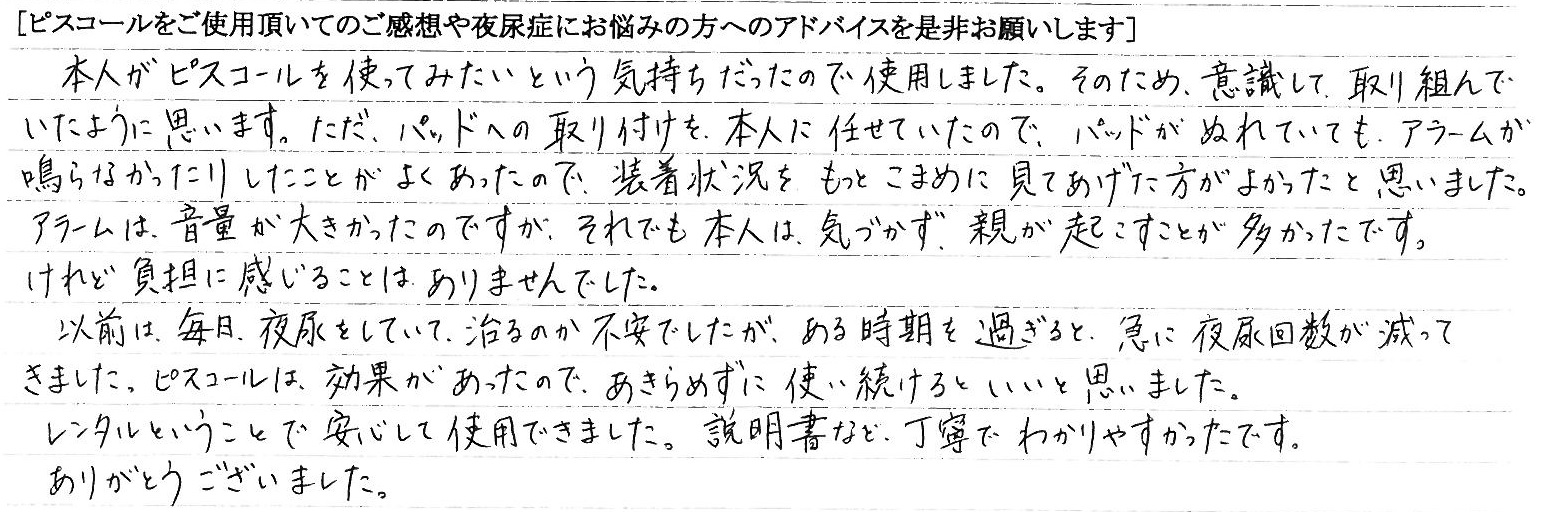 [ピスコールをご使用頂いてのご感想や夜尿症にお悩みの方へのアドバイスを是非お願いします]
本人がピスコールを使ってみたいという気持ちだったので使用しました。そのため、意識して、取り組んで
いたように思います。ただ、パッドへの取り付けを、本人に任せていたので、パッドがぬれていても、アラームが
鳴らなかったりしたことがよくあったので、装着状況をもっとこまめに見てあげた方がよかったと思いました。
アラームは、音量が大きかったのですが、それでも本人は、気づかず、親が起こすことが多かったです。
けれど負担に感じることはありませんでした。
以前は、毎日、夜尿をしていて、治るのか不安でしたが、ある時期を過ぎると、急に夜尿回数が減って
きました。ピスコールは、効果があったので、あきらめずに使い続けるといいと思いました。
レンタルということで安心して使用できました。説明書など、丁寧でわかりやすかったです。
ありがとうございました。